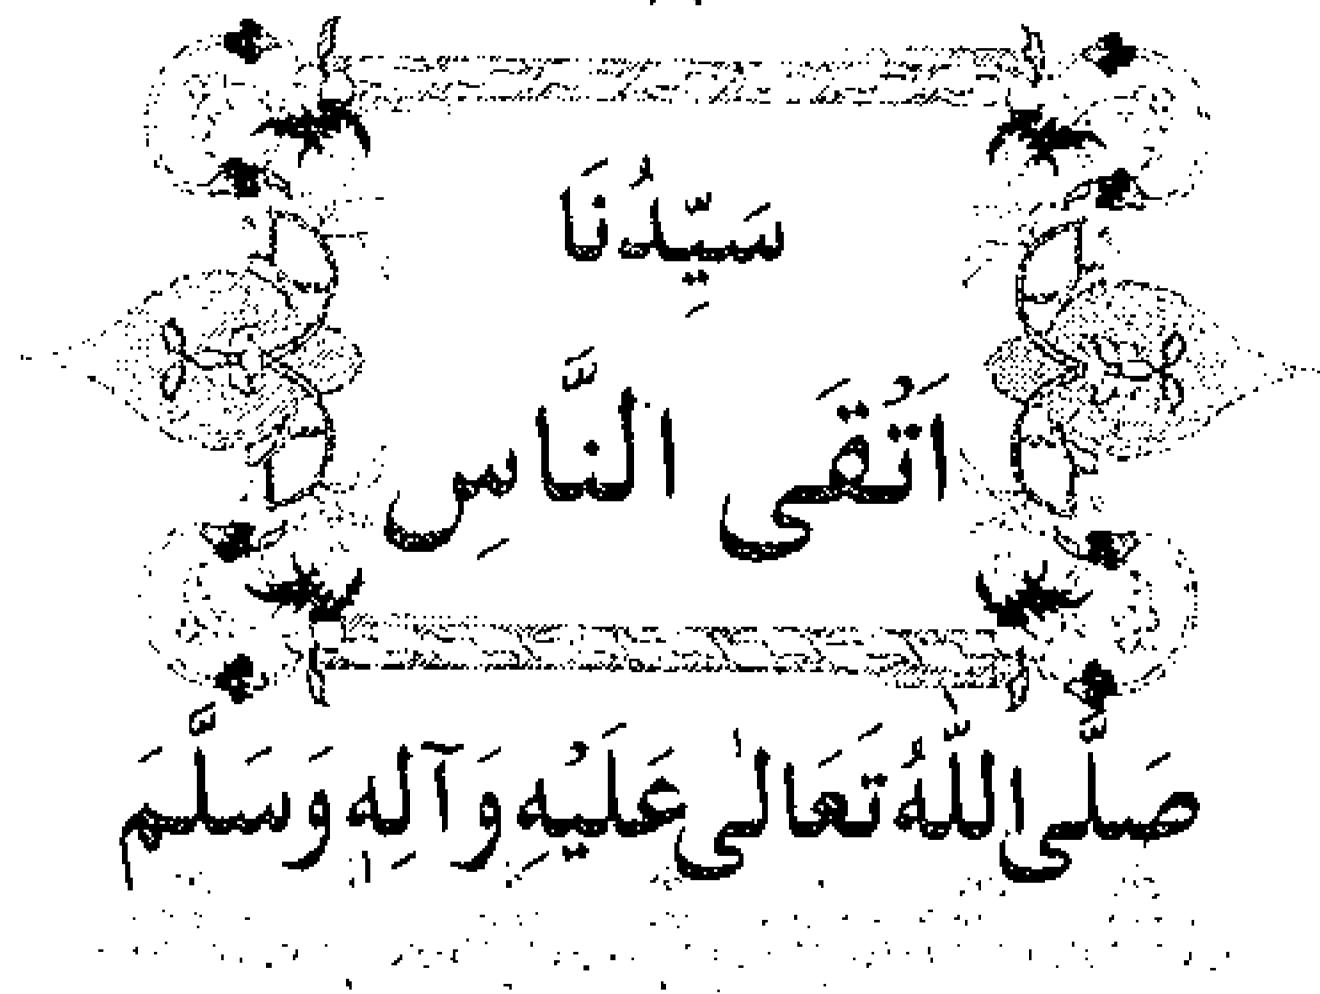 سَيِّدُنَا
اَتْقَى النَّاسِ
صَلَّى اللّٰهُ تَعَالٰى عَلَيْهِ وَآلِهٖ وَسَلَّمَ